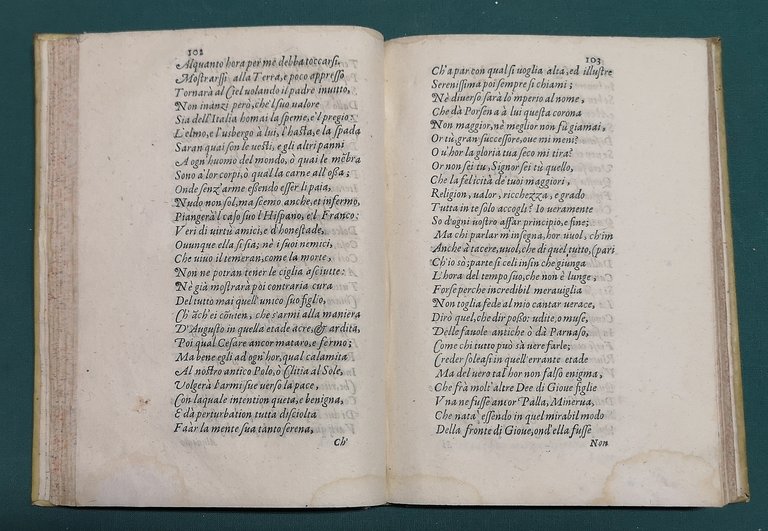 102
Alquanto hora per me debba toccarsi,
Mostrarssi alla Terra, e poco appresso
Tornarà al Ciel uolando il padre inuitto,
Non inanzi però, che'l suo ualore
Sia dell'Italia homai la speme, e'l pregio:
L'elmo, e l'usbergo à lui, l'hasta, e la spada
Saran quai son le uesti, e gli altri panni
A ogn'huomo del mondo, ò quai le mēbra
Sono a lor corpi, ò qual la carne all'ossa;
Onde senz'arme essendo esser li paia,
Nudo non sol, ma scemo anche, et infermo,
Piangerà l caso suo l'Hispano, e'l Franco:
Veri di uirtù amici, e d'honestade,
Ouunque ella si sia; nè i suoi nemici,
Che uiuo il temieran, come la morte,
Non ne potran tener le ciglia asciutte:
Nè già mostrarà poi contraria cura
Del tutto mai quell'unico suo figlio,
Ch'āch'ei cōuien, che s'armi alla maniera
D'Augusto in quella etade acre, & ardita,
Poi qual Cesare ancor maturo, e fermo;
Ma bene egli ad ogn'hor, qual calamita
Al nostro antico Polo, ò Clitia al Sole,
Volgerà l'armi sue uerso la pace,
Con laquale intention queta, e benigna,
E dà perturbation tutta disciolta
Faàr la mente sua tanto serena,
Ch'
103
Ch'a par con qual si uoglia alta, ed illustre
Serenissima poi sempre si chiami;
Nè diuerso sarà lo mperio al nome,
Che dà Porsena à lui questa corona
Non maggior, nè meglior non fù giamai,
Or tù, gran successore, oue mi meni?
O u'hor la gloria tua seco mi tira?
Or non sei tu, Signor sei tù quello,
Che la felicità de tuoi maggiori,
Religion, ualor, ricchezza, e grado
Tutta in te solo accogli? Io ueramente
So d'ogni uostro affar principio, e fine;
Ma chi parlar m'insegna, hor uuol, ch'im
Anche à tacere, uuol, che di quel tutto, (pari
Ch'io sò; parte si celi insin che giunga
L'hora del tempo suo, che non è lunge,
Forse perche incredibil merauiglia
Non toglia fede al mio cantar uerace,
Dirò quel, che dir posso: udite, o muse,
Delle fauole antiche ò dà Parnaso,
Come chi tutto può sà uere farle;
Creder soleasi in quell'errante etade
Ma del uero tal'hor non falso enigma,
Che frà molt'altre Dee di Gioue figlie
Vna ne fusse ancor Palla, Minerua,
Che nata essendo in quel mirabil modo
Della fronte di Gioue, ond'ella fusse
Non